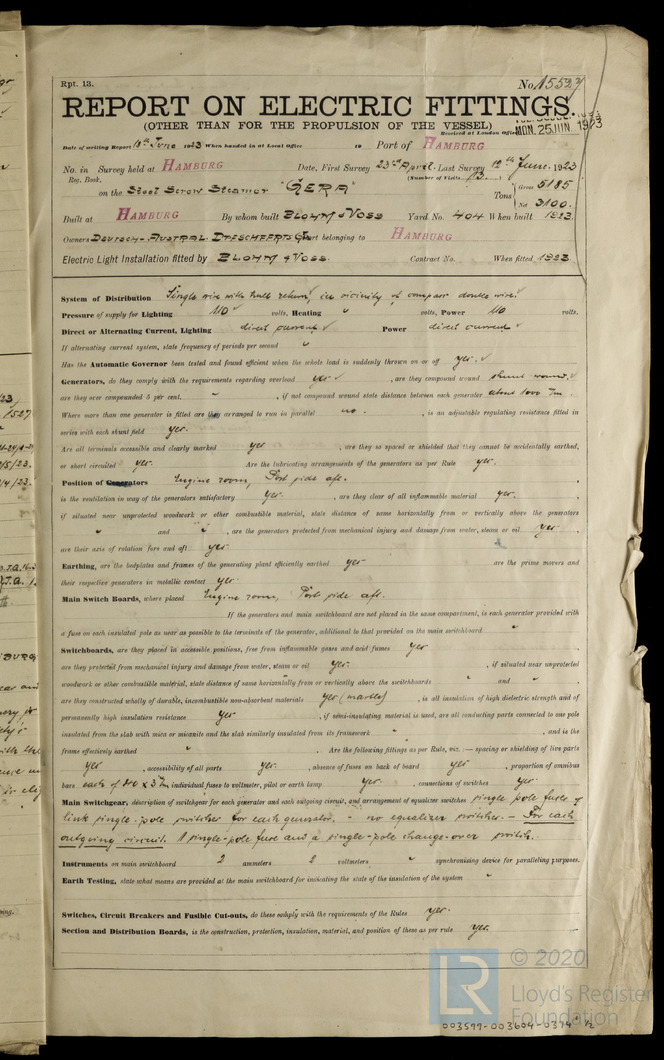 Rpt. 13.
No. 15527
REPORT ON ELECTRIC FITTINGS
(OTHER THAN FOR THE PROPULSION OF THE VESSEL)
Received at London Office MON. 25 JUN. 1923
Date of writing Report 13th June 1923 When handed in at Local Office 19 Port of HAMBURG
No. in Survey held at HAMBURG Date, First Survey 23rd April. Last Survey 12th June. 1923
Reg. Book. (Number of Visits 13.)
on the Steel Screw Steamer "GERA" Tons { Gross 5185
Net 3100.
Built at HAMBURG By whom built BLOHM & VOSS Yard No. 404 When built 1923.
Owners DEUTSCH-AUSTRAL. Port belonging to HAMBURG
Electric Light Installation fitted by BLOHM & VOSS. Contract No. When fitted 1923.
System of Distribution Single wire with hull return, in vicinity of compass double wire.
Pressure of supply for Lighting 110 volts, Heating " volts, Power 110 volts.
Direct or Alternating Current, Lighting direct current Power direct current
If alternating current system, state frequency of periods per second "
Has the Automatic Governor been tested and found efficient when the whole load is suddenly thrown on or off yes.
Generators, do they comply with the requirements regarding overload yes, are they compound wound shunt wound.
are they over compounded 5 per cent. " , if not compound wound state distance between each generator about 1000 m/m.
Where more than one generator is fitted are they arranged to run in parallel no. , is an adjustable regulating resistance fitted in
series with each shunt field yes.
Are all terminals accessible and clearly marked yes , are they so spaced or shielded that they cannot be accidentally earthed,
or short circuited yes. Are the lubricating arrangements of the generators as per Rule yes.
Position of Generators Engine room, Port side aft.
is the ventilation in way of the generators satisfactory yes. , are they clear of all inflammable material yes. ,
if situated near unprotected woodwork or other combustible material, state distance of same horizontally from or vertically above the generators
" and " , are the generators protected from mechanical injury and damage from water, steam or oil yes. ,
are their axes of rotation fore and aft yes.
Earthing, are the bedplates and frames of the generating plant efficiently earthed yes are the prime movers and
their respective generators in metallic contact yes.
Main Switch Boards, where placed Engine room, Port side aft.
If the generators and main switchboard are not placed in the same compartment, is each generator provided with
a fuse on each insulated pole as near as possible to the terminals of the generator, additional to that provided on the main switchboard "
Switchboards, are they placed in accessible positions, free from inflammable gases and acid fumes yes
are they protected from mechanical injury and damage from water, steam or oil yes. , if situated near unprotected
woodwork or other combustible material, state distance of same horizontally from or vertically above the switchboards " and " ,
are they constructed wholly of durable, incombustible non-absorbent materials yes (marble) , is all insulation of high dielectric strength and of
permanently high insulation resistance yes , if semi-insulating material is used, are all conducting parts connected to one pole
insulated from the slab with mica or micanite and the slab similarly insulated from its framework " , and is the
frame effectively earthed " . Are the following fittings as per Rule, viz.:— spacing or shielding of live parts
yes , accessibility of all parts yes. , absence of fuses on back of board yes , proportion of omnibus
bars individual fuses to voltmeter, pilot or earth lamp yes. , connections of switches yes.
Main Switchgear, description of switchgear for each generator and each outgoing circuit, and arrangement of equalizer switches single pole fuses &
link single-pole switches for each generator. - no equalizer switches. - For each
outgoing circuit. 1 single-pole fuse and a single-pole change-over switch.
Instruments on main switchboard 2 ammeters 2 voltmeters " synchronising device for paralleling purposes.
Earth Testing, state what means are provided at the main switchboard for indicating the state of the insulation of the system "
Switches, Circuit Breakers and Fusible Cut-outs, do these comply with the requirements of the Rules yes.
Section and Distribution Boards, is the construction, protection, insulation, material, and position of these as per rule yes.
© 2020
LR Lloyd's Register
Foundation
003597-003604-0374 1/2